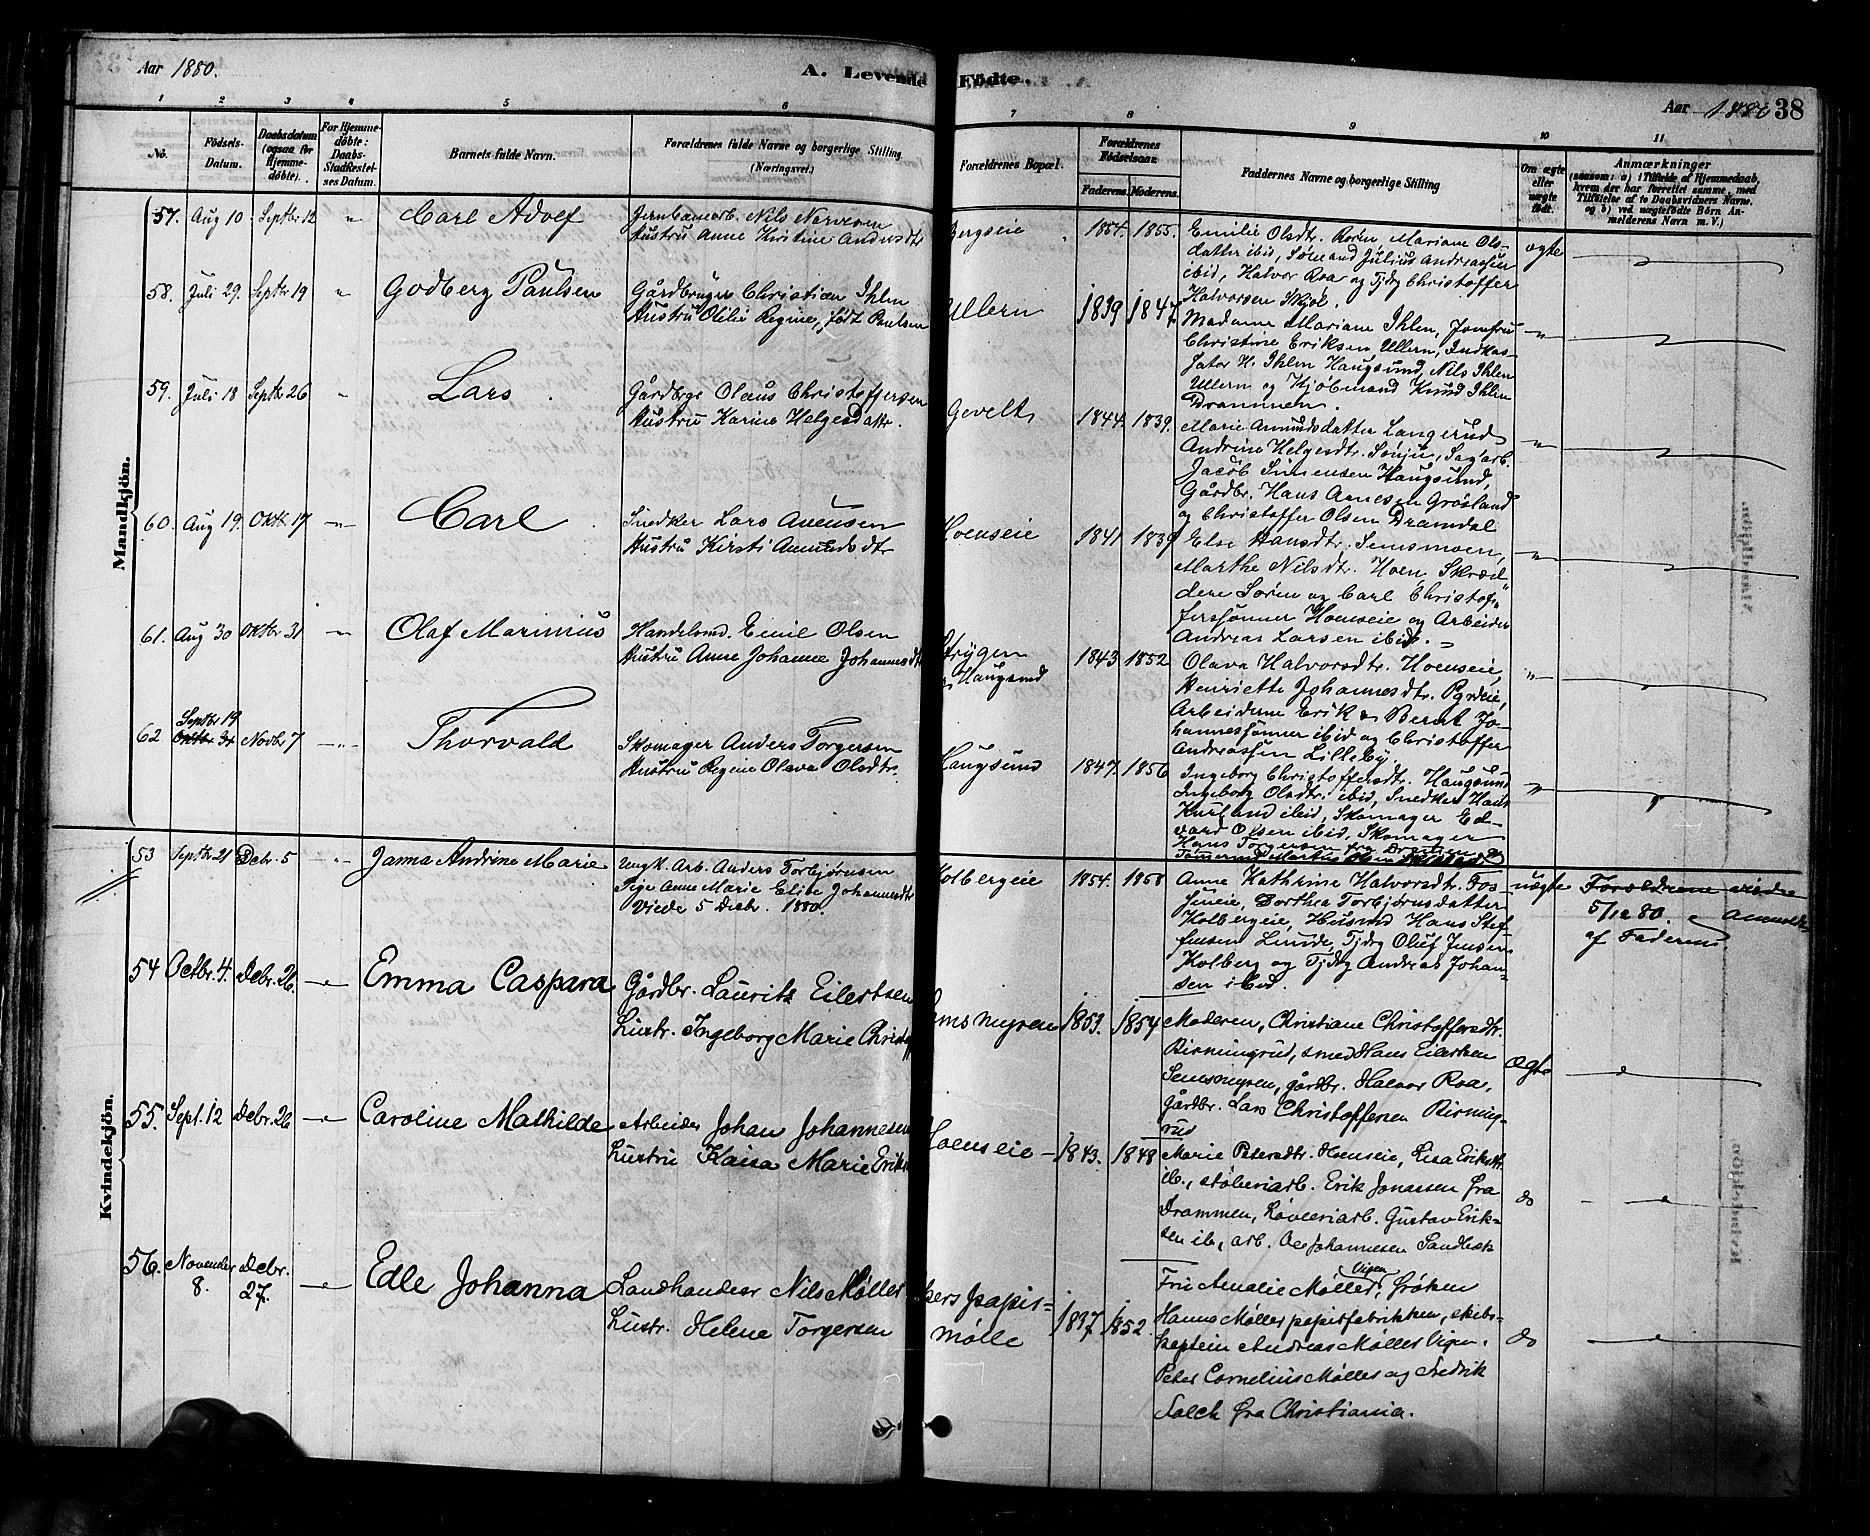 Aar 1880.
A. Levende Fødte.
Aar 1880 38
1 2 3 4 5 6 7 8 9 10 11
No.
Fødsels-Datum.
Daabsdatum (ogsaa for Hjemmedøbte).
For Hjemmedøbte: Daabs-Stadfæstelses Datum.
Barnets fulde Navn.
Forældrenes fulde Navne og borgerlige Stilling (Næringsvei.)
Forældrenes Bopæl.
Forældrenes Fødselsaar.
Faderens. Moderens.
Faddernes Navne og borgerlige Stilling
Om ægte eller uægte født.
Anmærkninger
(saasom: a) i Tilfælde af Hjemmedaab, hvem der har forrettet samme, med Tilføielse af to Daabsvidners Navne. og b) ved uægtefødte Børn Anmelderens Navn m. V.)
Mandkjön.
57. Aug 10 Septbr 12 " Carl Adolf
Jernbanearb. Nils Narvesen
Hustru Anne Kirstine Andersdtr
Bergseie 1854. 1855.
Emilie Olsdtr. Roren, Mariane Ols-
datter ibid, Sømand Julius Andreassen
ibid, Halvor Roa og Tjdrg Christoffer
Halvorsen Skjøl.
ægte
58. Juli 29. Septbr 19 " Godberg Paulsen
Gårdbruger Christian Ihlen
Hustru Otilie Regine, født Paulsen
Ullern 1839 1847
Madame Mariane Ihlen, Jomfru
Christine Eriksen Ullern, Indkas-
sator H. Ihlen Haugsund, Nils Ihlen
Ullern og Kjøbmand Knud Ihlen
Drammen.
59. Juli 18 Septbr 26 " Lars
Gårdbrgr Olaus Christoffersen
Hustru Karine Helgesdattr.
Gevelt 1844. 1839.
Marie Amundsdatter Langerud
Andrine Helgesdtr. Sønju, Sagarb.
Jacob Simensen Haugsund,
Gårdbr. Hans Arnesen Grøsland
og Christoffer Olsen Dramdal
60. Aug 19. Oktbr 17 " Carl
Snedker Lars Avensen
Hustru Kirsti Amundsdtr
Hoenseie 1841 1839
Else Hansdtr. Semsmoen,
Marthe Nilsdtr. Hoen, Skræd-
dere Søren og Carl Christof-
fersønner Hoenseie og Arbeider
Andreas Larsen ibid.
61. Aug 30 Oktbr 31 " Olaf Marinius
Handelsmd. Emil Olsen
Hustru Anne Johanne Johannesdtr
Strygen Haugsund 1843 1852
Olava Halvorsdtr. Hoenseie,
Henriette Johannesdtr. ibid
Arbeiderne Erik & Bernt Jo-
hannessønner ibid og Christoffer
Andreassen Lilleby.
62 Septbr 19 Oktbr 31 Novbr 7 " Thorvald
Skomager Anders Torgersen
Hustru Regine Olava Olsdtr.
Haugsund 1847. 1856
Ingeborg Christoffersdtr. Haugsund
Ingeborg Olsdtr. ibid, Snedker Hans
Kurland ibid, Skomager Ed-
vard Olsen ibid, Skomager
Hans Torgersen fra Drammen
Kvindekjön.
53 Septbr 21 Decbr. 5 " Janna Andrine Marie
Ungk. Arb. Anders Torbjørnsen
Pige Anne Marie Elise Johannesdtr
Viede 5 Decbr. 1880.
Kolbergeie 1854. 1858
Anne Kathrine Halvorsdtr. Fos-
seneie, Dorthea Torbjørnsdatter
Kolbergeie, Husmd Hans Stef-
fensen Lunde, Tjdrg Oluf Jensen
Kolberg og Tjdrg Andreas Johan-
sen ibid.
uægte
Forældrene viede
5/12 80. Anmeldt
af Faderen.
54 Octbr. 4. Decbr. 26 Emma Caspara
Gårdbr. Laurits Eilertsen
Hustr. Ingeborg Marie
Semsmyren 1853. 1854
Moderen, Christiane Christoffersdtr.
Birmingrud, smed Hans Eilertsen
Semsmyren, gårdbr. Halvor Roa,
Gårdbr. Lars Christoffersen Birming-
rud
Ægte
55. Sept. 12 Decbr. 26 Caroline Mathilde
Arbeider Johan Johannesen
Hustru Kaisa Marie
Hoenseie 1843. 1848
Marie Petersdtr. Hoenseie, Lisa Eriksdtr
ib., støberiarb. Erik Jonassen fra
Drammen, Løveriarb. Gustav Erik-
sen ib, arb. Ole Johannesen Sandbæk
do
56. November 8. Decbr. 27. Edle Johanna
Landhandler Nils Møller
Hustr. Helene Torgersen
papir-
mølle 1837 1852.
Fru Amalie Møller, Vigen frøken
Hanna Møller papirfabrikken, skibs-
kaptein Andreas Møller Vigen.
Peter Cornelius Møller og Fredrik
Salch fra Christiania.
do